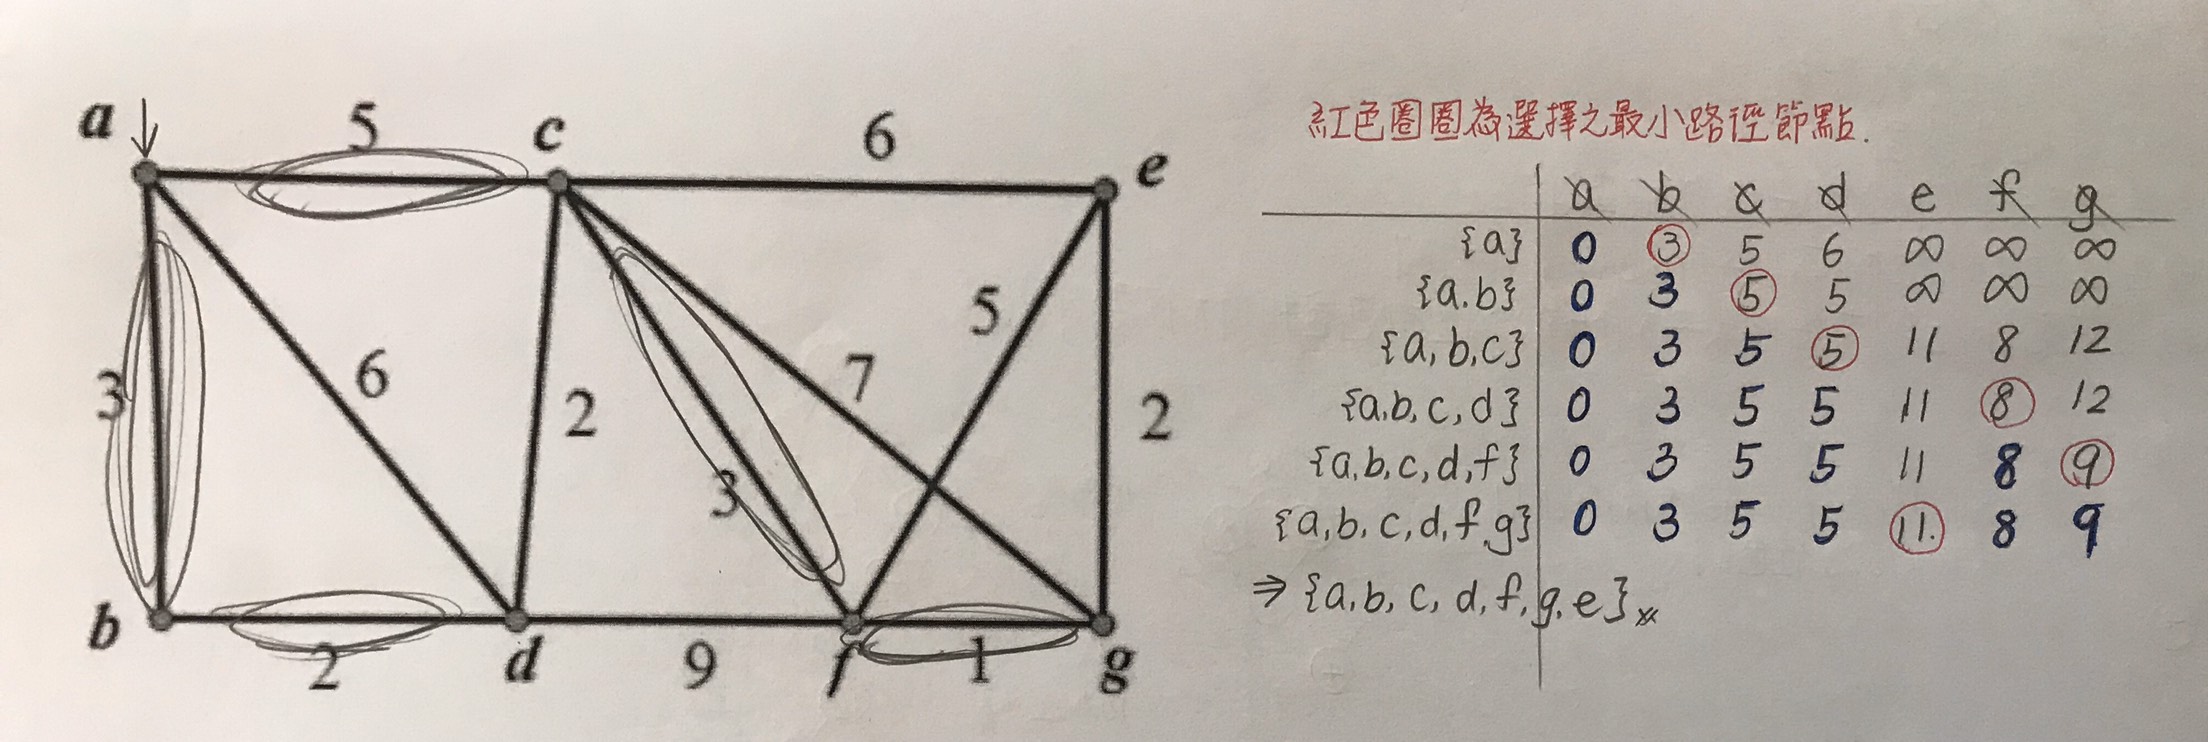 a 5 c 6 e
3 6 2 3 7 5 2
b 2 d 9 f 1 g
紅色圈圈為選擇之最小路徑節點.
a b c d e f g
{a} 0 3 5 6 ∞ ∞ ∞
{a.b} 0 3 5 5 ∞ ∞ ∞
{a,b,c} 0 3 5 5 11 8 12
{a.b,c,d} 0 3 5 5 11 8 12
{a.b,c,d,f} 0 3 5 5 11 8 9
{a,b,c,d,f,g} 0 3 5 5 11. 8 9
⇒ {a.b, c, d, f, g, e}